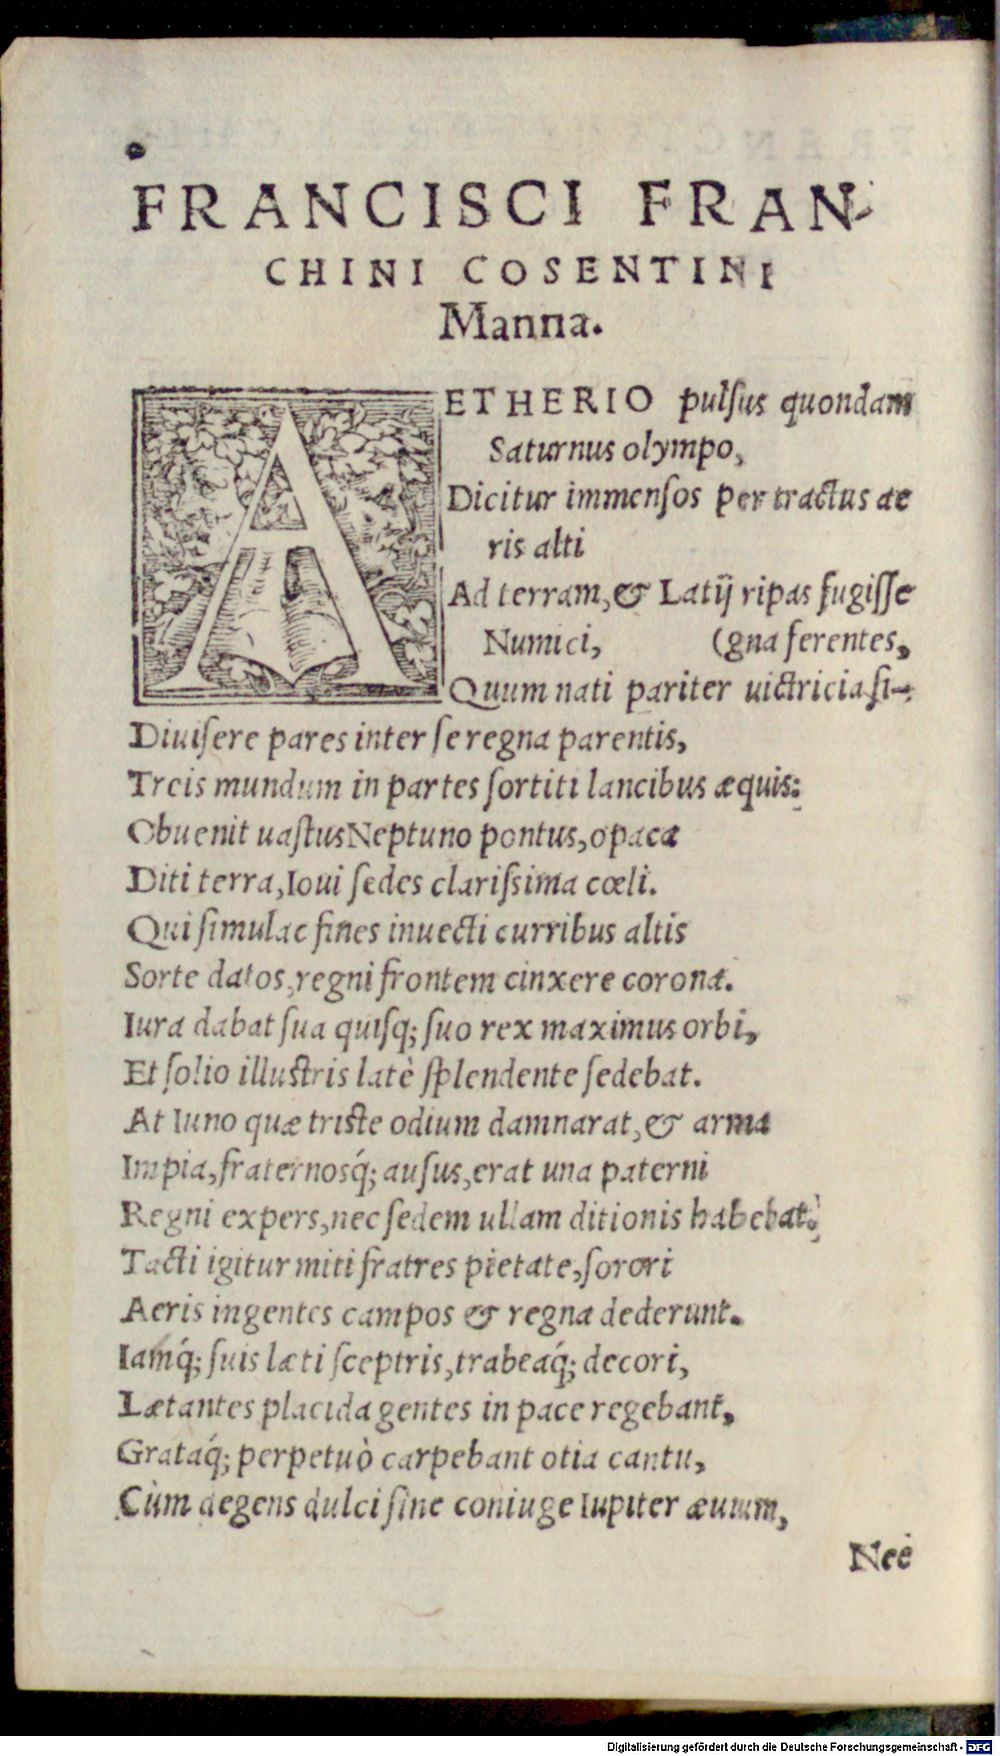 FRANCISCI FRAN-
CHINI COSENTINI
Manna.
AETHERIO pulſus quondam
Saturnus olympo,
Dicitur immenſos per tractus ae
ris alti
Ad terram, & Latij ripas fugiſſe
Numici, (gna ferentes,
Quum nati pariter uictricia ſi-
Diuiſere pares inter ſe regna parentis,
Treis mundum in partes ſortiti lancibus æquis:
Obuenit uaſtus Neptuno pontus, opaca
Diti terra, Ioui ſedes clariſsima cœli.
Qui ſimulac fines inuecti curribus altis
Sorte datos, regni frontem cinxere corona.
Iura dabat ſua quiſq; ſuo rex maximus orbi,
Et ſolio illuſtris latè ſplendente ſedebat.
At Iuno quæ triſte odium damnarat, & arma
Impia, fraternosq́; auſus, erat una paterni
Regni expers, nec ſedem ullam ditionis habebat.
Tacti igitur miti fratres pietate, ſorori
Aeris ingentes campos & regna dederunt.
Iamq́; ſuis læti ſceptris, trabeaq́; decori,
Lætantes placida gentes in pace regebant,
Grataq́; perpetuò carpebant otia cantu,
Cùm degens dulci ſine coniuge Iupiter æuum,
Nec
Digitalisierung gefördert durch die Deutsche Forschungsgemeinschaft - DFG